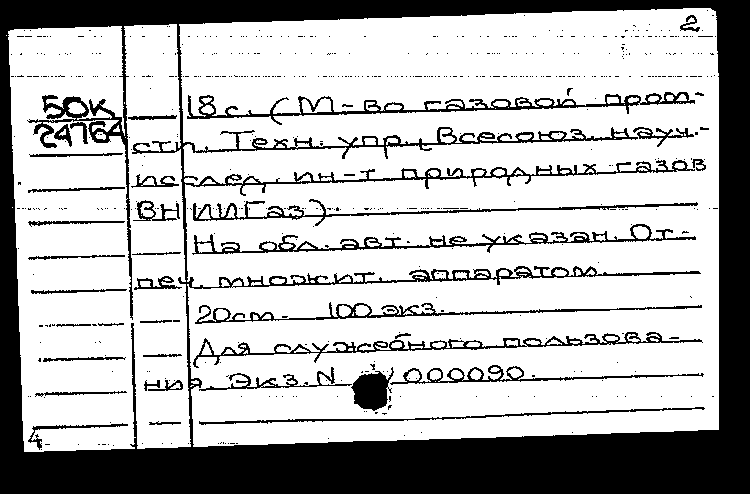 2
50К
24764
18 с. (М-во газовой пром-
сти. Техн. упр., Всесоюз. науч.-
исслед. ин-т природных газов
ВНИИГаз).
На обл. авт. не указан. От-
печ. множит. аппаратом.
20см. 100 экз.
Для служебного пользова-
ния. Экз. N 000090.
4